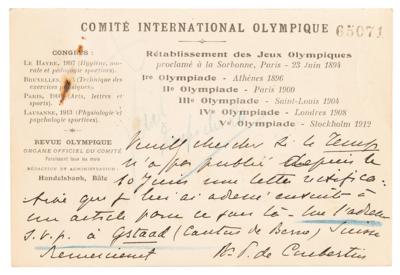 COMITÉ INTERNATIONAL OLYMPIQUE
65071
CONGRÈS :
LE HAVRE, 1897 (Hygiène, morale et pédagogie sportives).
BRUXELLES, (Technique des exercices physiques).
PARIS, (Arts, lettres et sports).
LAUSANNE, 1913 (Physiologie et psychologie sportives).
REVUE OLYMPIQUE
ORGANE OFFICIEL DU COMITÉ
Paraissant tous les mois
RÉDACTION ET ADMINISTRATION :
Handelsbank, Bâle
Rétablissement des Jeux Olympiques
proclamé à la Sorbonne, Paris - 23 Juin 1894
Ire Olympiade - Athènes 1896
IIe Olympiade - Paris 1900
IIIe Olympiade - Saint-Louis 1904
IVe Olympiade - Londres 1908
Olympiade - Stockholm 1912
Veuillez chercher si le Temps
n'a pas publié depuis le
10 Juin une lettre rectifica-
tive que je lui ai adressé ensuite à
un article paru ce jour là -
s.v.p. à Gstaad (Canton de Berne) Suisse
Remerciement Bn P. de Coubertin